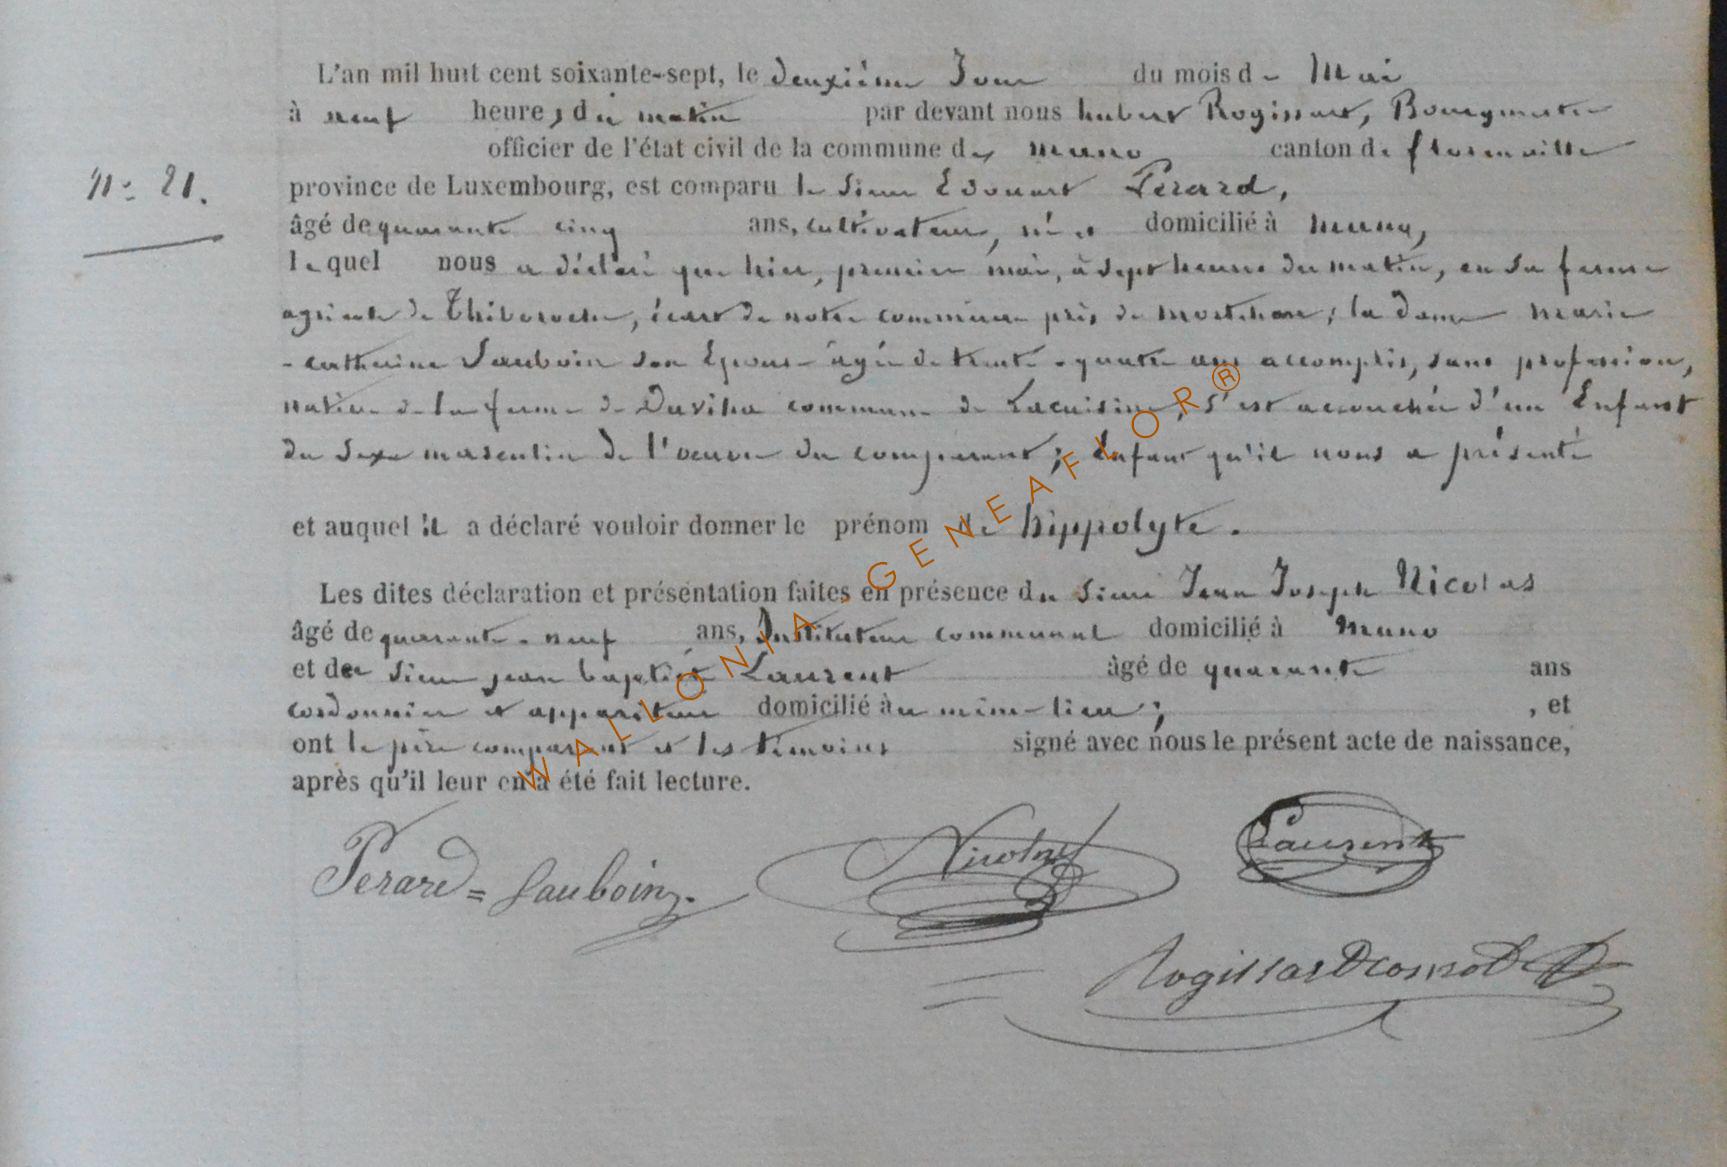 L'an mil huit cent soixante-sept, le deuxième Jour du mois de Mai
à neuf heures du matin par devant nous hubert Rogissart, Bourgmestre
officier de l'état civil de la commune de muno canton de florenville
N° 21. province de Luxembourg, est comparu le sieur Edouart Perard,
âgé de quarante cinq ans, cultivateur, né et domicilié à muno,
lequel nous a déclaré que hier, premier mai, à sept heures du matin, en sa ferme
agricole de écart de notre commune près de mortehan; la dame marie
-catherine Sauboin son Epouse âgée de trente-quatre ans accomplis, sans profession,
native de la ferme de commune de Lacuisine, s'est accouchée d'un Enfant
du sexe masculin de l'oeuvre du comparant; Enfant qu'il nous a présenté
et auquel il a déclaré vouloir donner le prénom de hippolyte.
Les dites déclaration et présentation faites en présence du sieur Jean Joseph Nicolas
âgé de quarante-neuf ans, Instituteur communal domicilié à muno
et de sieur jean baptiste Laurent âgé de quarante ans
cordonnier et appariteur domicilié au même-lieu; , et
ont le père comparant et les témoins signé avec nous le présent acte de naissance,
après qu'il leur en a été fait lecture.
Perard=Sauboin. Nicolas Laurent
Rogissart
WALLONIA GENEAFLOR®